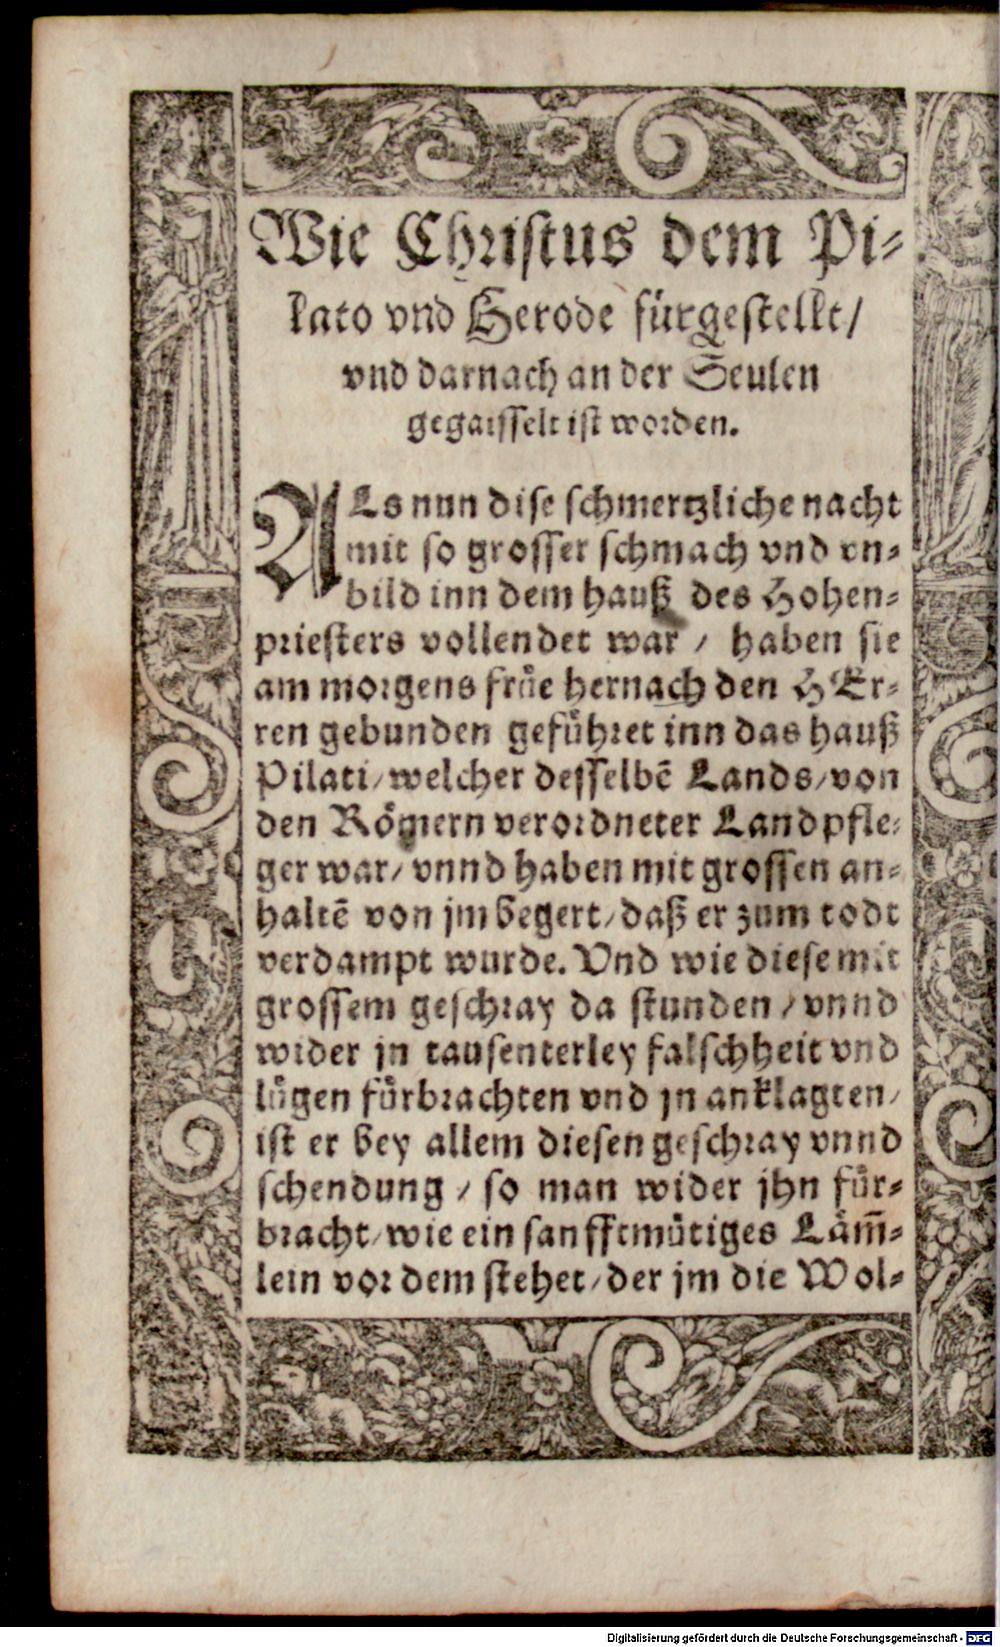 Wie Christus dem Pi-
lato vnd Herode fürgestellt/
vnd darnach an der Seulen
gegaisselt ist worden.
ALs nun dise schmertzliche nacht
mit so grosser schmach vnd vn-
bild inn dem hauß des Hohen-
priesters vollendet war / haben sie
am morgens früe hernach den HEr-
ren gebunden geführet inn das hauß
Pilati/welcher desselbẽ Lands/von
den Römern verordneter Landpfle-
ger war/ vnnd haben mit grossen an-
haltẽ von jm begert/daß er zum todt
verdampt wurde. Vnd wie diese mit
grossem geschray da stunden / vnnd
wider jn tausenterley falschheit vnd
lügen fürbrachten vnd jn anklagten/
ist er bey allem diesen geschray vnnd
schendung / so man wider jhn für-
bracht/wie ein sanfftmütiges Läm̃-
lein vor dem stehet/der jm die Wol-
Digitalisierung gefördert durch die Deutsche Forschungsgemeinschaft - DFG